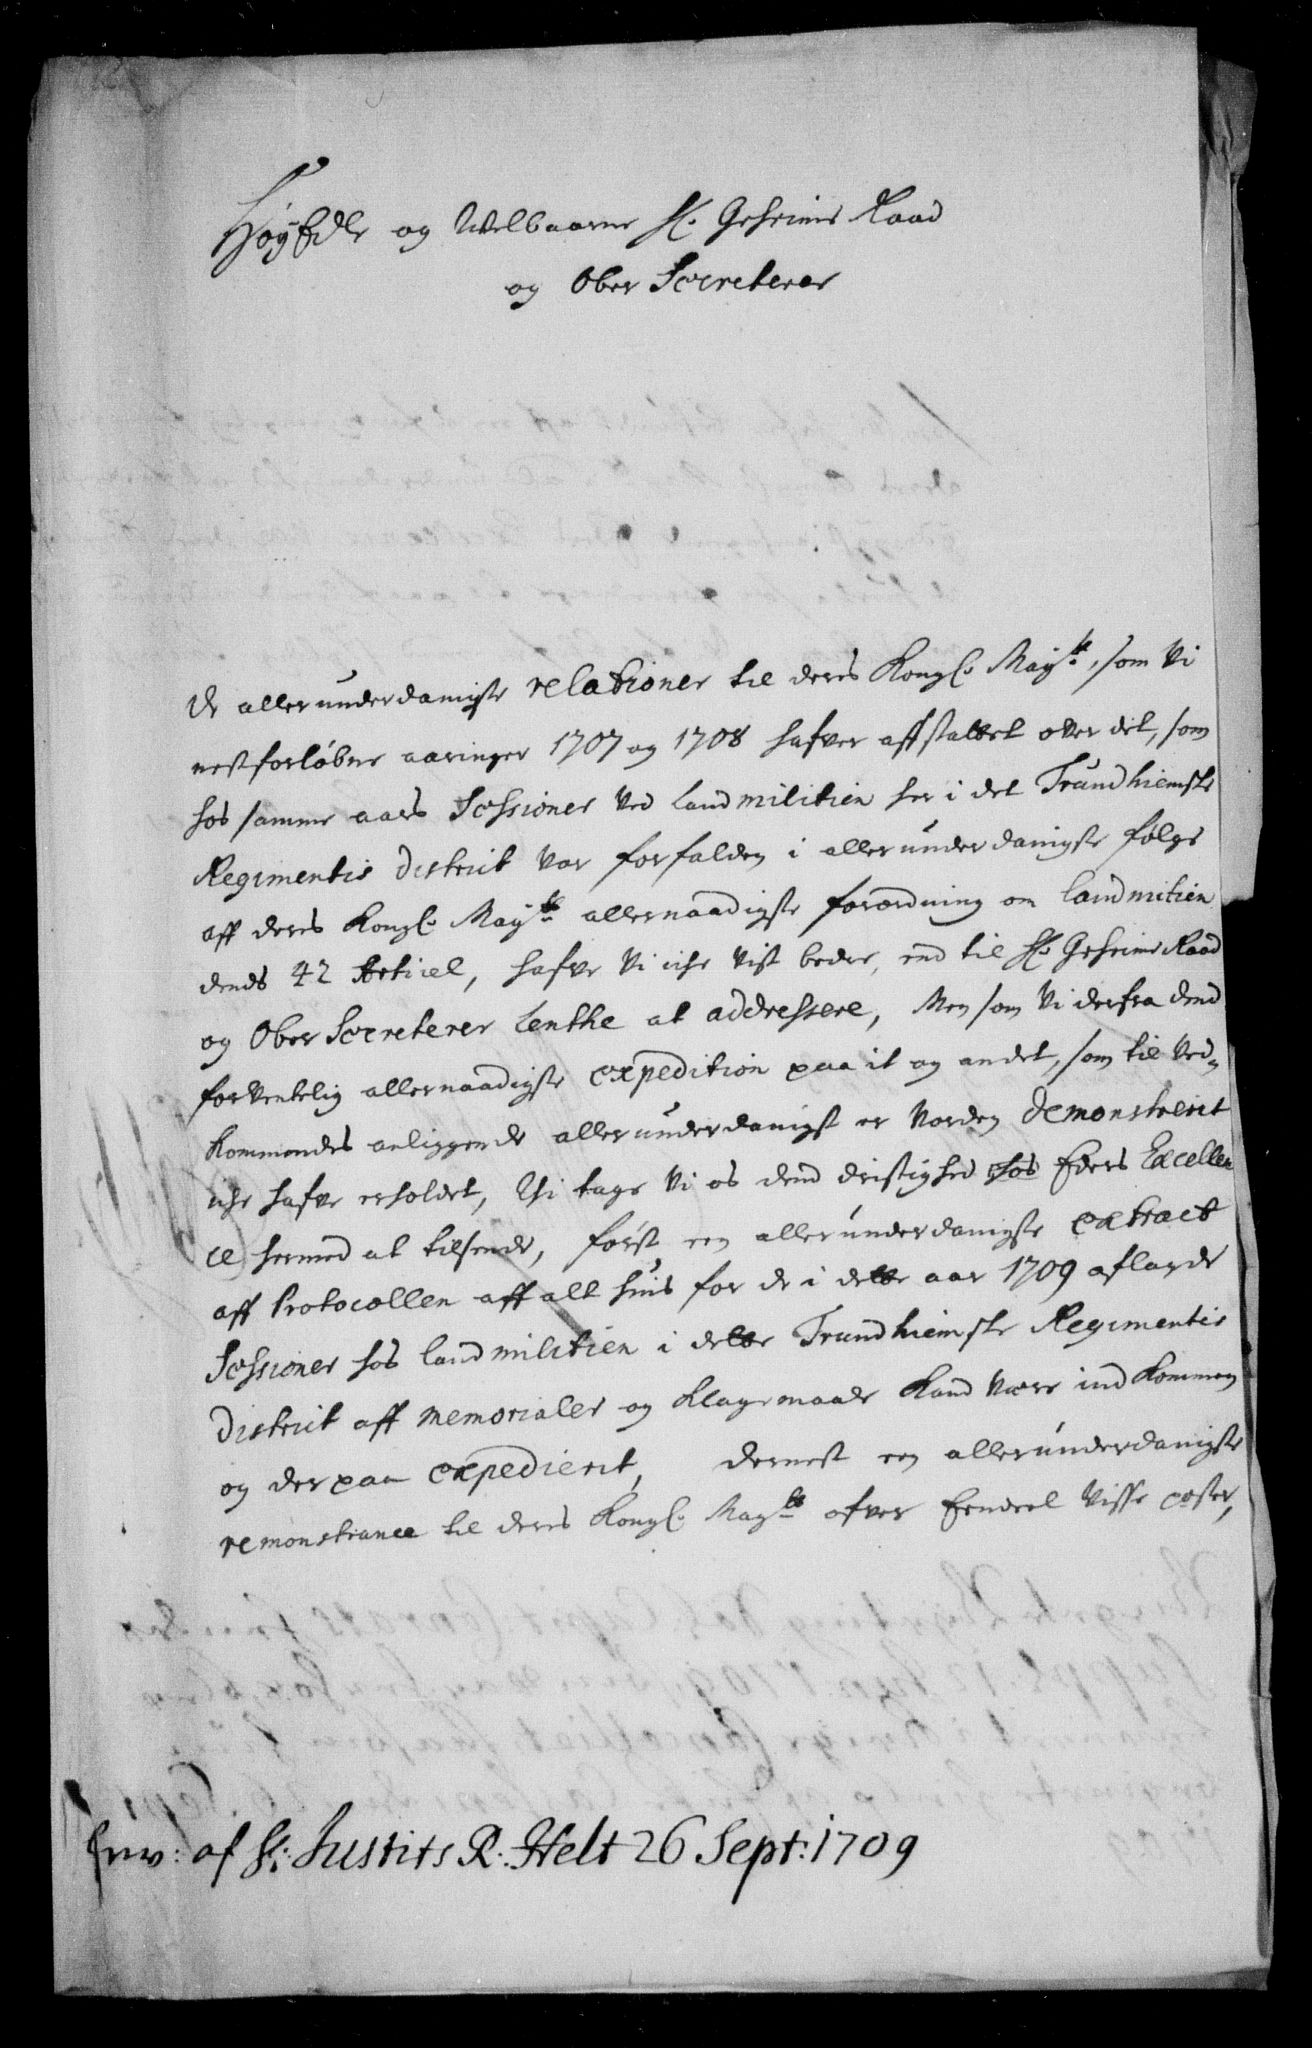 HøyEdle og Welbaarne H: Geheime Raad
og Ober Secreterer
De allerunderdanigste relationer til deres Kongl: Mayst: som vi
nestforløbne aaringer 1707 og 1708 hafver affstattet over det, som
hos samme aars Sessioner ved land militien her i det Trundhiemske
Regimentis district var forfalden i allerunderdanigste følge
aff deres Kongl: Mayts: allernaadigste forordning om landmitien
dends 42 Articul, hafve vi iche vist bedre, end til H: Geheime Raad
og Ober Secreterer Lenthe at addressere, Men som vi derfra dend
forventelig allernaadigste expedition paa it og andet, som til ved-
kommendes anliggende allerunderdanigst er vorden demonstrerit
iche hafve erholdet, Thi tage vi os dend dristighed hos Eders Excellen
ce hermed at tilsende, først een allerunderdanigste extract
aff Protocollen aff alt huis for de i dette aar 1709 aflagde
Sessioner hos landmilitien i dette Trundhiemske Regimentis
District aff memorialer og klagemaade kand være indkommen
og derpaa expedierit, dernest een allerunderdanigste
remonstrance til deres Kongl: Mayts: ofver Eendeel visse poster,
af H: Justits R: Helt 26 Sept: 1709